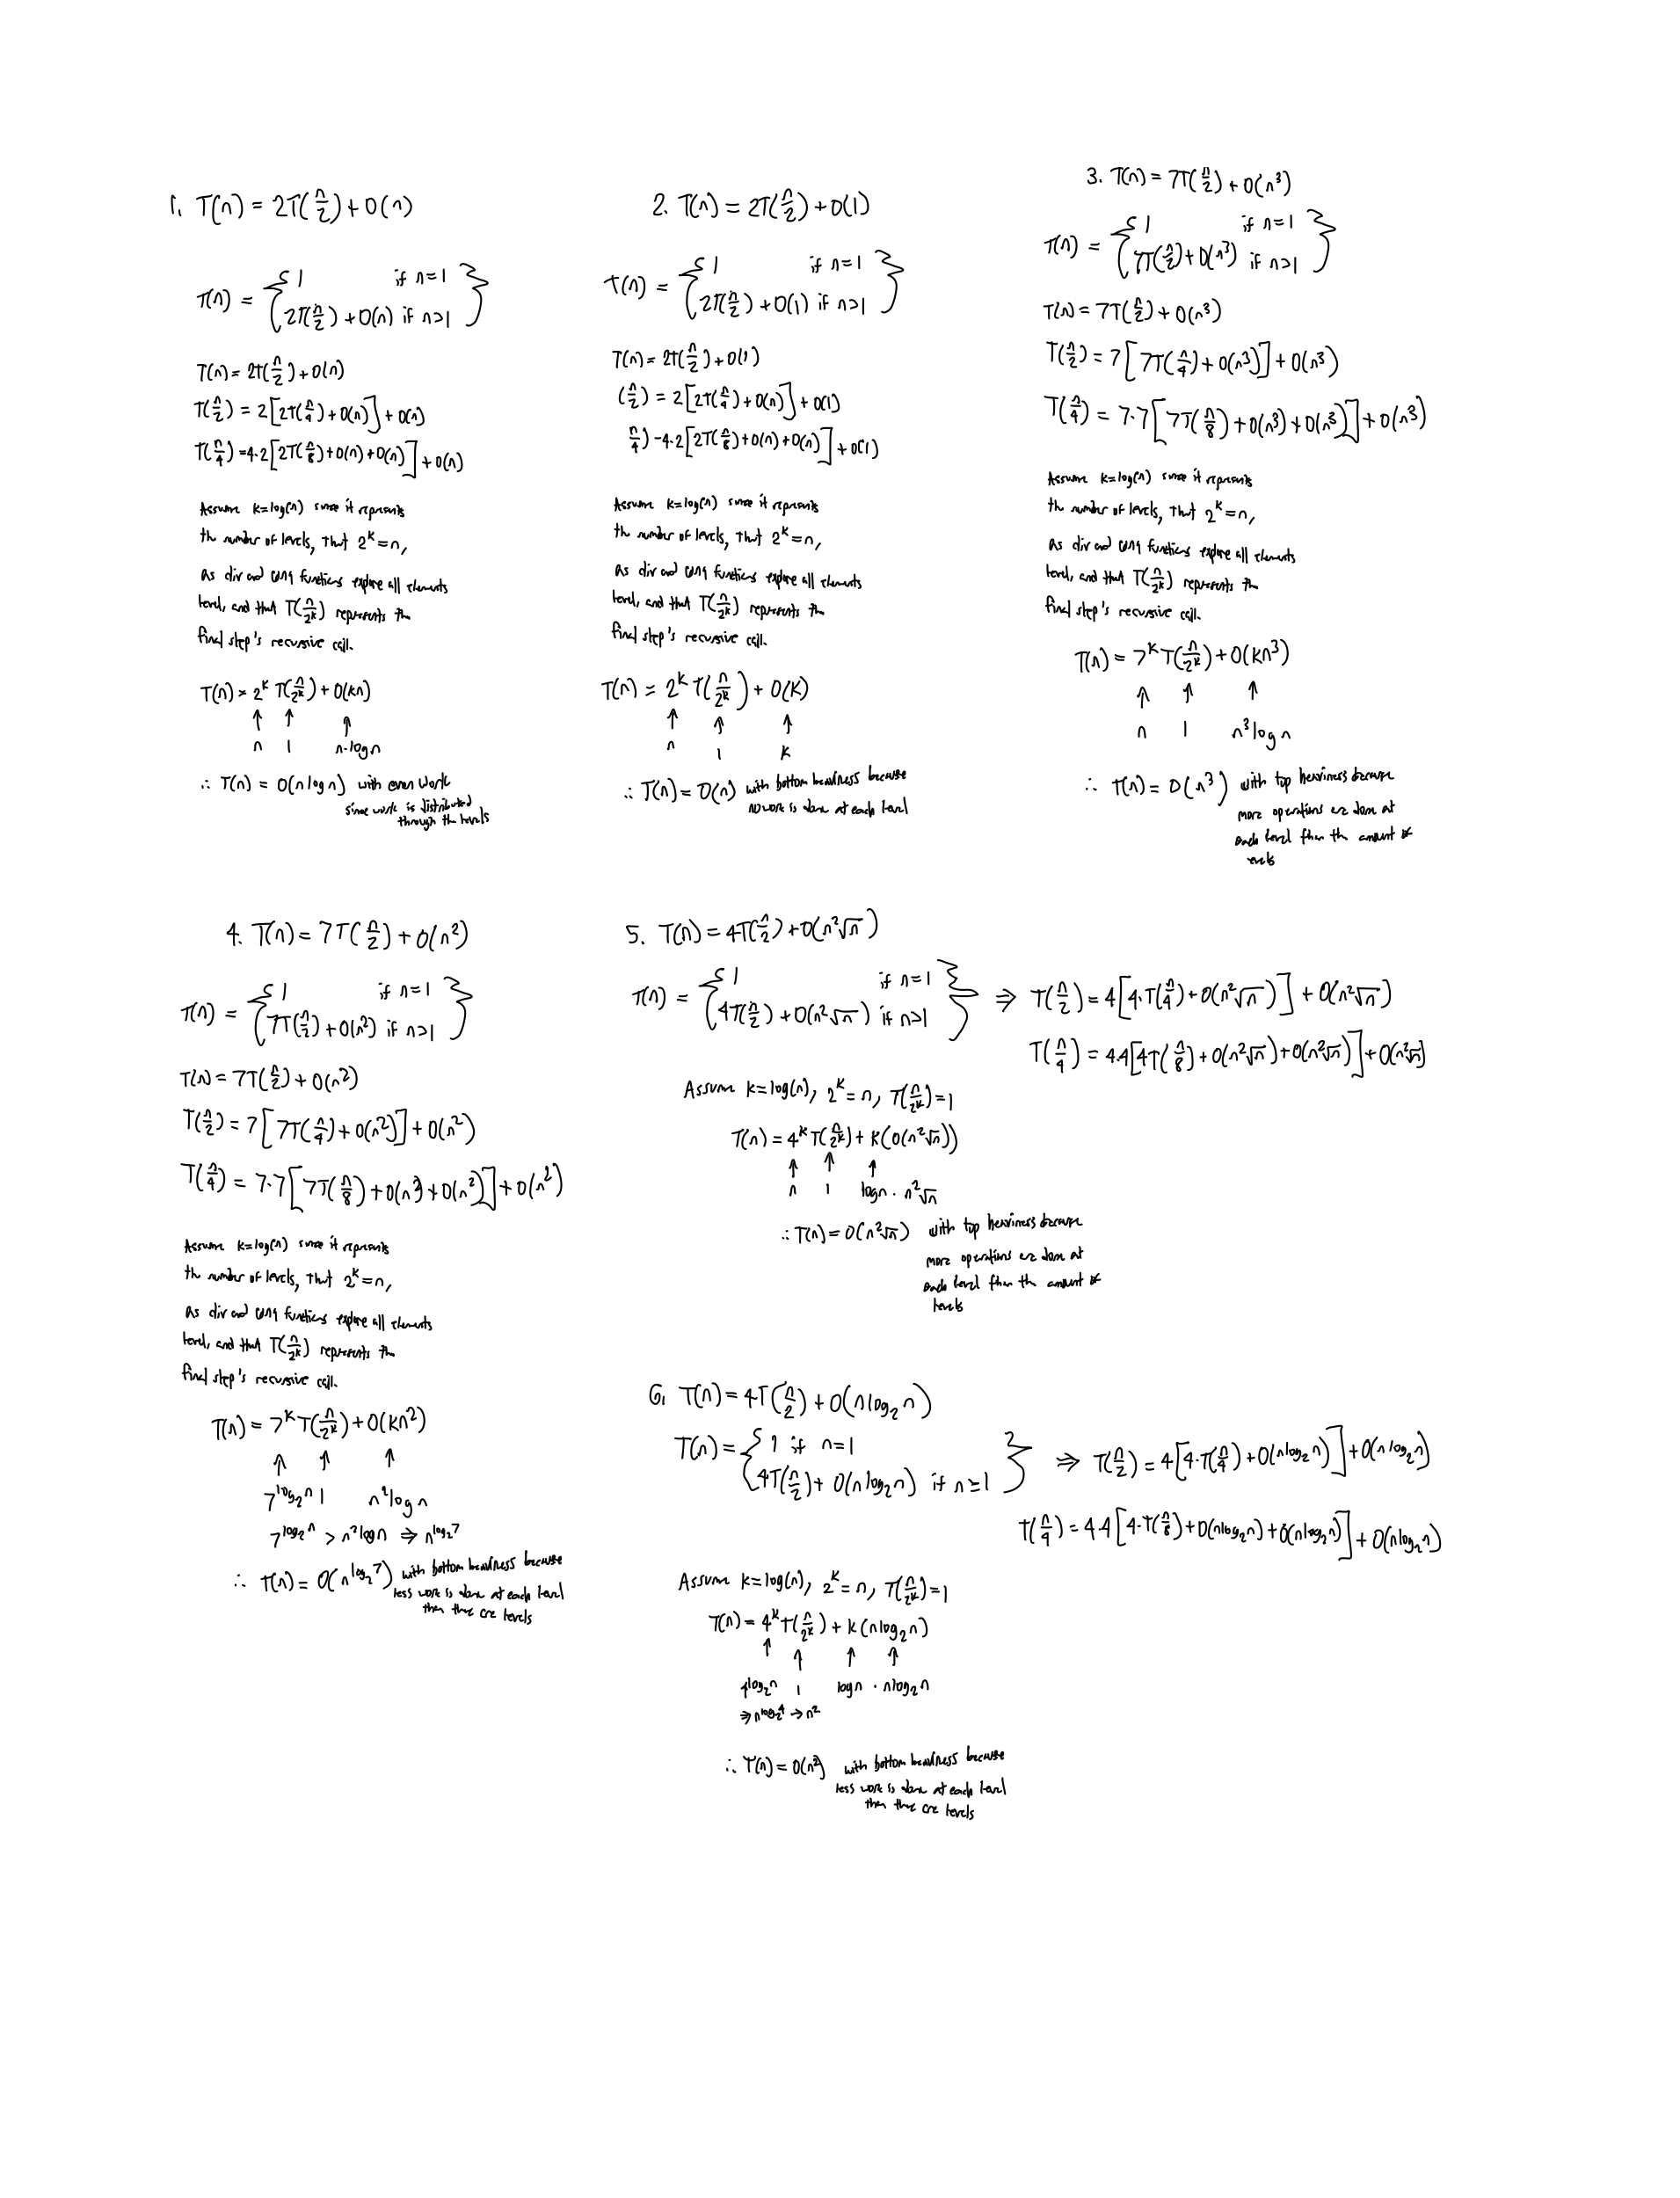 1. T(n) = 2T(n/2) + O(n)
T(n) = { 1 if n=1
2T(n/2) + O(n) if n>1 }
T(n) = 2T(n/2) + O(n)
T(n/2) = 2[2T(n/4) + O(n)] + O(n)
T(n/4) = 4·2[2T(n/8) + O(n) + O(n)] + O(n)
Assume k=log(n) since it represents
the number of levels, that 2^k = n,
as div and conq functions explore all elements
level, and that T(n/2^k) represents the
final step's recursive call.
T(n) = 2^k T(n/2^k) + O(kn)
↑ ↑ ↑
n 1 n·log n
∴ T(n) = O(n log n) with even work
since work is distributed
through the levels
2. T(n) = 2T(n/2) + O(1)
T(n) = { 1 if n=1
2T(n/2) + O(1) if n>1 }
T(n) = 2T(n/2) + O(1)
(n/2) = 2[2T(n/4) + O(n)] + O(1)
n/4) = 4·2[2T(n/8) + O(n) + O(n)] + O(1)
Assume k=log(n) since it represents
the number of levels, that 2^k = n,
as div and conq functions explore all elements
level, and that T(n/2^k) represents the
final step's recursive call.
T(n) = 2^k T(n/2^k) + O(k)
↑ ↑ ↑
n 1 k
∴ T(n) = O(n) with bottom heaviness because
no work is done at each level
3. T(n) = 7T(n/2) + O(n^3)
T(n) = { 1 if n=1
7T(n/2) + O(n^3) if n>1 }
T(n) = 7T(n/2) + O(n^3)
T(n/2) = 7[7T(n/4) + O(n^3)] + O(n^3)
T(n/4) = 7·7[7T(n/8) + O(n^3) + O(n^3)] + O(n^3)
Assume k=log(n) since it represents
the number of levels, that 2^k = n,
as div and conq functions explore all elements
level, and that T(n/2^k) represents the
final step's recursive call.
T(n) = 7^k T(n/2^k) + O(kn^3)
↑ ↑ ↑
n 1 n^3 log n
∴ T(n) = O(n^3) with top heaviness because
more operations are done at
each level than the amount of
levels
4. T(n) = 7T(n/2) + O(n^2)
T(n) = { 1 if n=1
7T(n/2) + O(n^2) if n>1 }
T(n) = 7T(n/2) + O(n^2)
T(n/2) = 7[7T(n/4) + O(n^2)] + O(n^2)
T(n/4) = 7·7[7T(n/8) + O(n^2) + O(n^2)] + O(n^2)
Assume k=log(n) since it represents
the number of levels, that 2^k = n,
as div and conq functions explore all elements
level, and that T(n/2^k) represents the
final step's recursive call.
T(n) = 7^k T(n/2^k) + O(kn^2)
↑ ↑ ↑
7^log₂n 1 n^2 log n
7^log₂n > n^2 log n ⇒ n^log₂7
∴ T(n) = O(n^log₂7) with bottom heaviness because
less work is done at each level
then there are levels
5. T(n) = 4T(n/2) + O(n^2√n)
T(n) = { 1 if n=1
4T(n/2) + O(n^2√n) if n>1 }
⇒ T(n/2) = 4[4·T(n/4) + O(n^2√n)] + O(n^2√n)
T(n/4) = 4·4[4T(n/8) + O(n^2√n) + O(n^2√n)] + O(n^2√n)
Assume k=log(n), 2^k = n, T(n/2^k) = 1
T(n) = 4^k T(n/2^k) + k(O(n^2√n))
↑ ↑ ↑
n 1 log n · n^2√n
∴ T(n) = O(n^2√n) with top heaviness because
more operations are done at
each level than the amount of
levels
6. T(n) = 4T(n/2) + O(n log₂ n)
T(n) = { 1 if n=1
4T(n/2) + O(n log₂ n) if n≥1 }
⇒ T(n/2) = 4[4·T(n/4) + O(n log₂ n)] + O(n log₂ n)
T(n/4) = 4·4[4·T(n/8) + O(n log₂ n) + O(n log₂ n)] + O(n log₂ n)
Assume k=log(n), 2^k = n, T(n/2^k) = 1
T(n) = 4^k T(n/2^k) + k(n log₂ n)
↑ ↑ ↑ ↑
4^log₂n 1 log n · n log₂ n
⇒ n^log₂4 → n^2
∴ T(n) = O(n^2) with bottom heaviness because
less work is done at each level
then there are levels